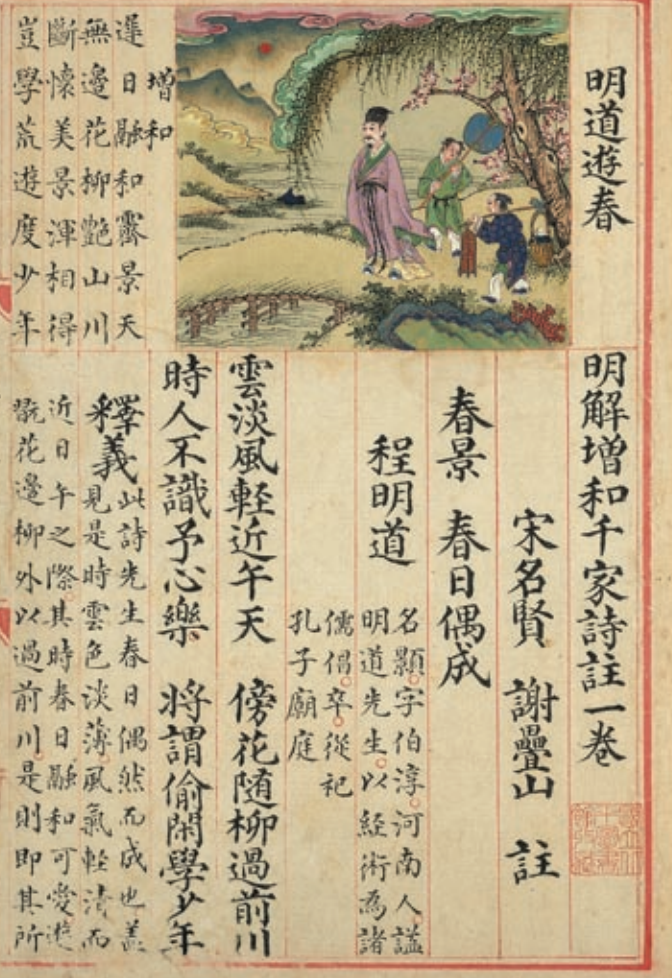 明道遊春
增和
遲日融和霽景天
無邊花柳艷山川
斷懷美景渾相得
豈學荒遊度少年
明解增和千家詩註一卷
宋名賢 謝疊山 註
春景 春日偶成
程明道
名顥。字伯淳。河南人。諡
明道先生。以經術為諸
儒倡。卒。從祀
孔子廟庭
雲淡風輕近午天 傍花随柳過前川
時人不識予心樂 將謂偷閑學少年
釋義
此詩先生春日偶然而成也蓋
見是時雲色淡薄。風氣輕清而
近日午之際。其時春日融和可愛遊
翫花邊柳外以過前川。是則即其所